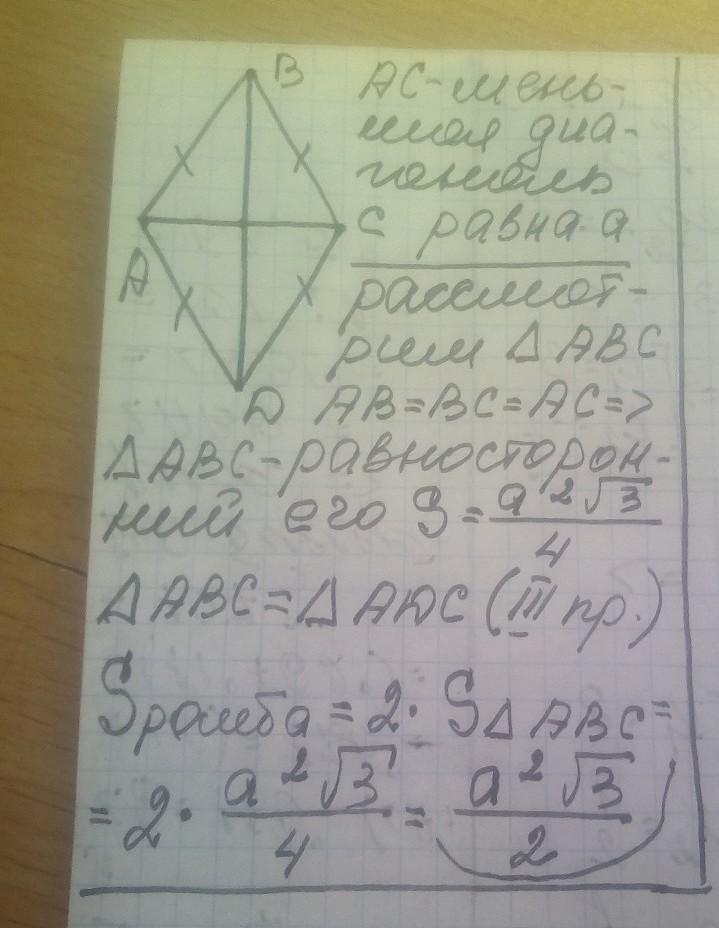 B
AC-мень-
шая диа-
гональ
A
C равна a
рассмот-
рим ΔABC
D AB=BC=AC=>
ΔABC-равносторон-
ний его S = a²√3/4
ΔABC=ΔADC (III пр.)
Sромба = 2· SΔABC =
= 2 · a²√3/4 = a²√3/2